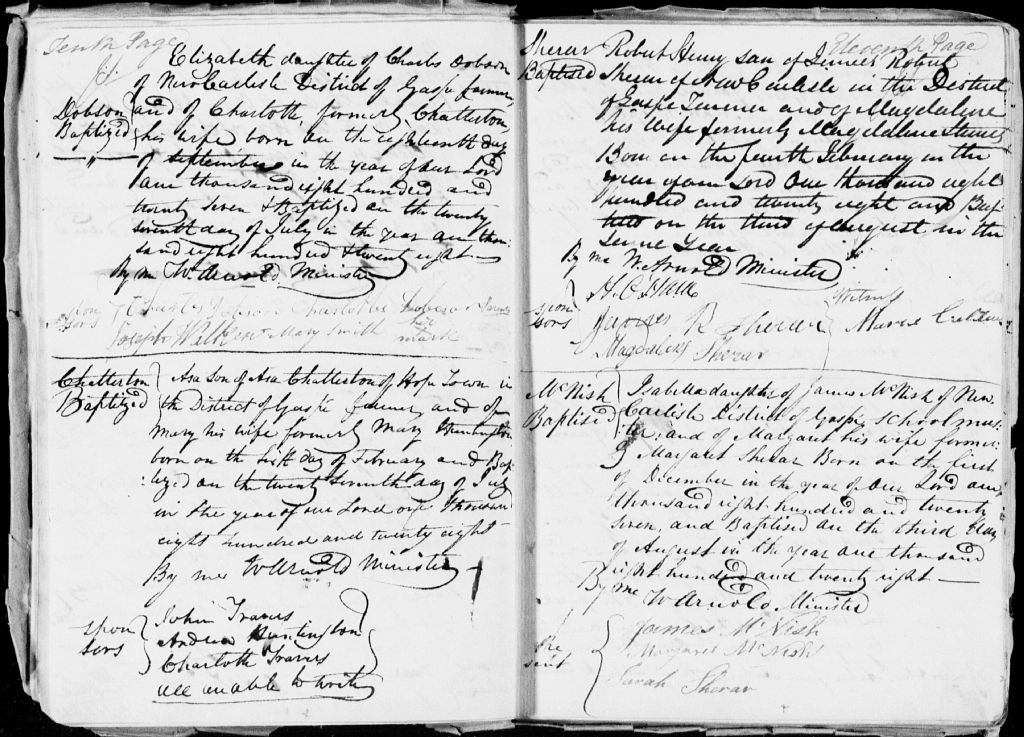 Tenth Page
Elizabeth daughter of Charles Dobson
of New Carlisle District of Gaspé farmer,
Dobson and of Charlotte, formerly Chatterton,
Baptized his wife born on the eighteenth day
of September in the year of our Lord
one thousand eight hundred and
twenty seven & Baptized on the twenty
seventh day of July in the year one thou
sand eight hundred & twenty eight
By me W. Arnold Minister
spon Charles Dobson Charlotte Dobson
sors Joseph Wilken Mary Smith her mark
Chatterton Asa Son of Asa Chatterton of Hope Town in
Baptized the District of Gaspé farmer and of
Mary his wife formerly Mary Huntington
born on the first day of February and Bap
tized on the twenty seventh day of July
in the year of our Lord one thousand
eight hundred and twenty eight
By me W Arnold Minister
spon John Travers
sors Andrew Huntington
Charlotte Travers
all unable to write
Eleventh Page
Sherar Robert Henry son of James Robert
Baptised Sherar of New Carlisle in the District
of Gaspé and of Magdalene
his wife formerly Magdalene
Born on the fourth February in the
year of our Lord One thousand eight
hundred and twenty eight and Bap
tised on the third of August in the
Same Year
By me W. Arnold Minister
spon H. C.
sors James R Sherar
Magdalen Sherar
Witness
Maria
McNish Isabella daughter of James McNish of New
Baptised Carlisle District of Gaspé School mas
ter, and of Margaret his wife former
ly Margaret Sherar Born on the first
of December in the year of our Lord one
thousand eight hundred and twenty
seven, and Baptised on the third day
of August in the year one thousand
eight hundred and twenty eight
By me W Arnold Minister
pre James McNish
sent Margaret McNish
Sarah Sherar